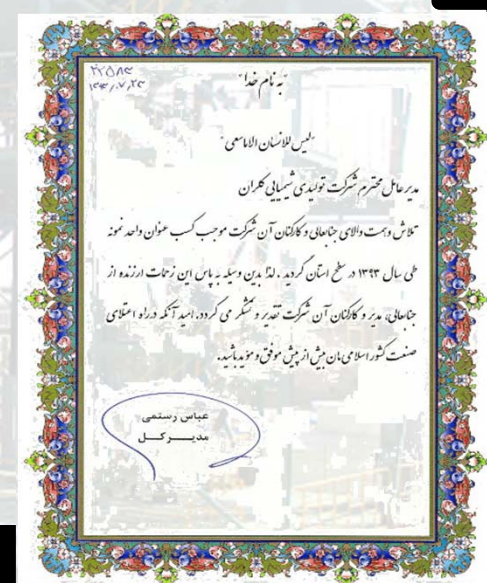 ۲۲۵۸۴
"به نام خدا"
"لیس للانسان الا ماسعی"
مدیر عامل محترم شرکت تولیدی شیمیایی کلران
تلاش و همت والای جنابعالی و کارکنان آن شرکت موجب کسب عنوان واحد نمونه
طی سال ۱۳۹۳ در سطح استان گردید . لذا بدین وسیله به پاس این زحمات ارزنده از
جنابعالی، مدیر و کارکنان آن شرکت تقدیر و تشکر می گردد. امید آنکه در راه اعتلای
صنعت کشور اسلامی مان بیش از پیش موفق و موید باشید.
عباس رستمی
مدیر کل